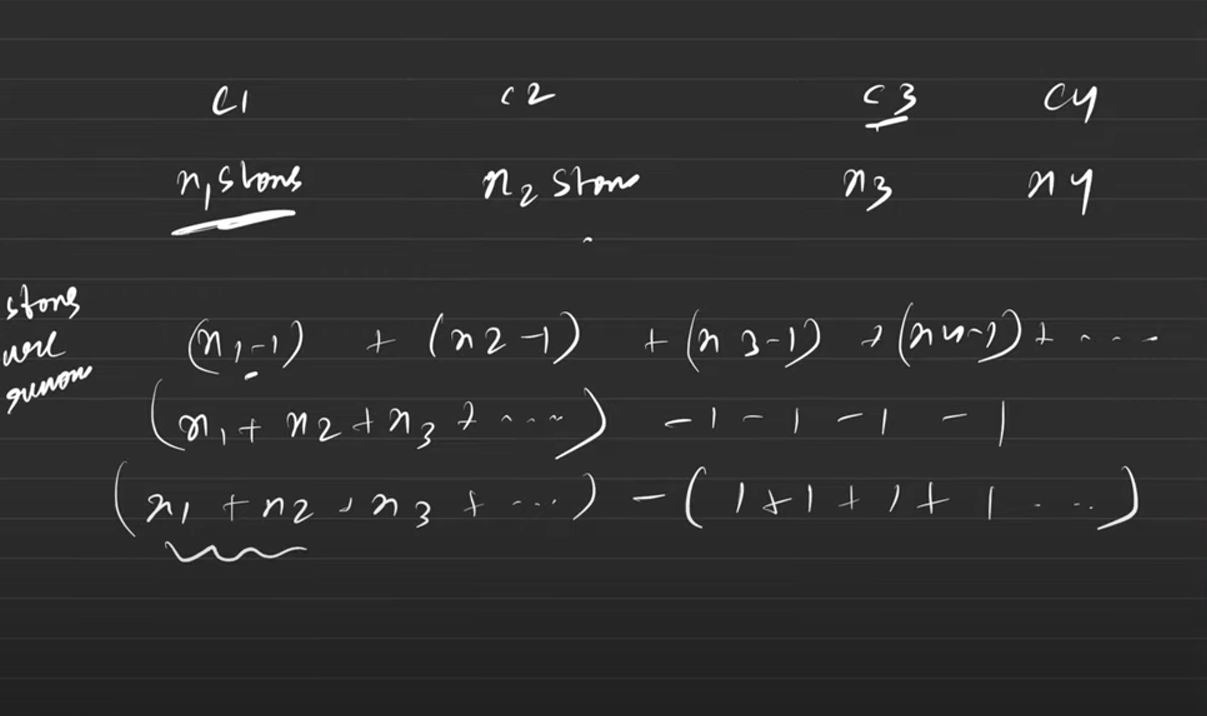 C1 C2 C3 C4
n₁ stons n₂ stons n3 n4
stons
were
(n₁-1) + (n2-1) + (n3-1) + (n4-1) + ....
(n₁ + n2 + n3 + ....) -1 -1 -1 -1
(n₁ + n2 + n3 + ....) - (1+1+1+1....)